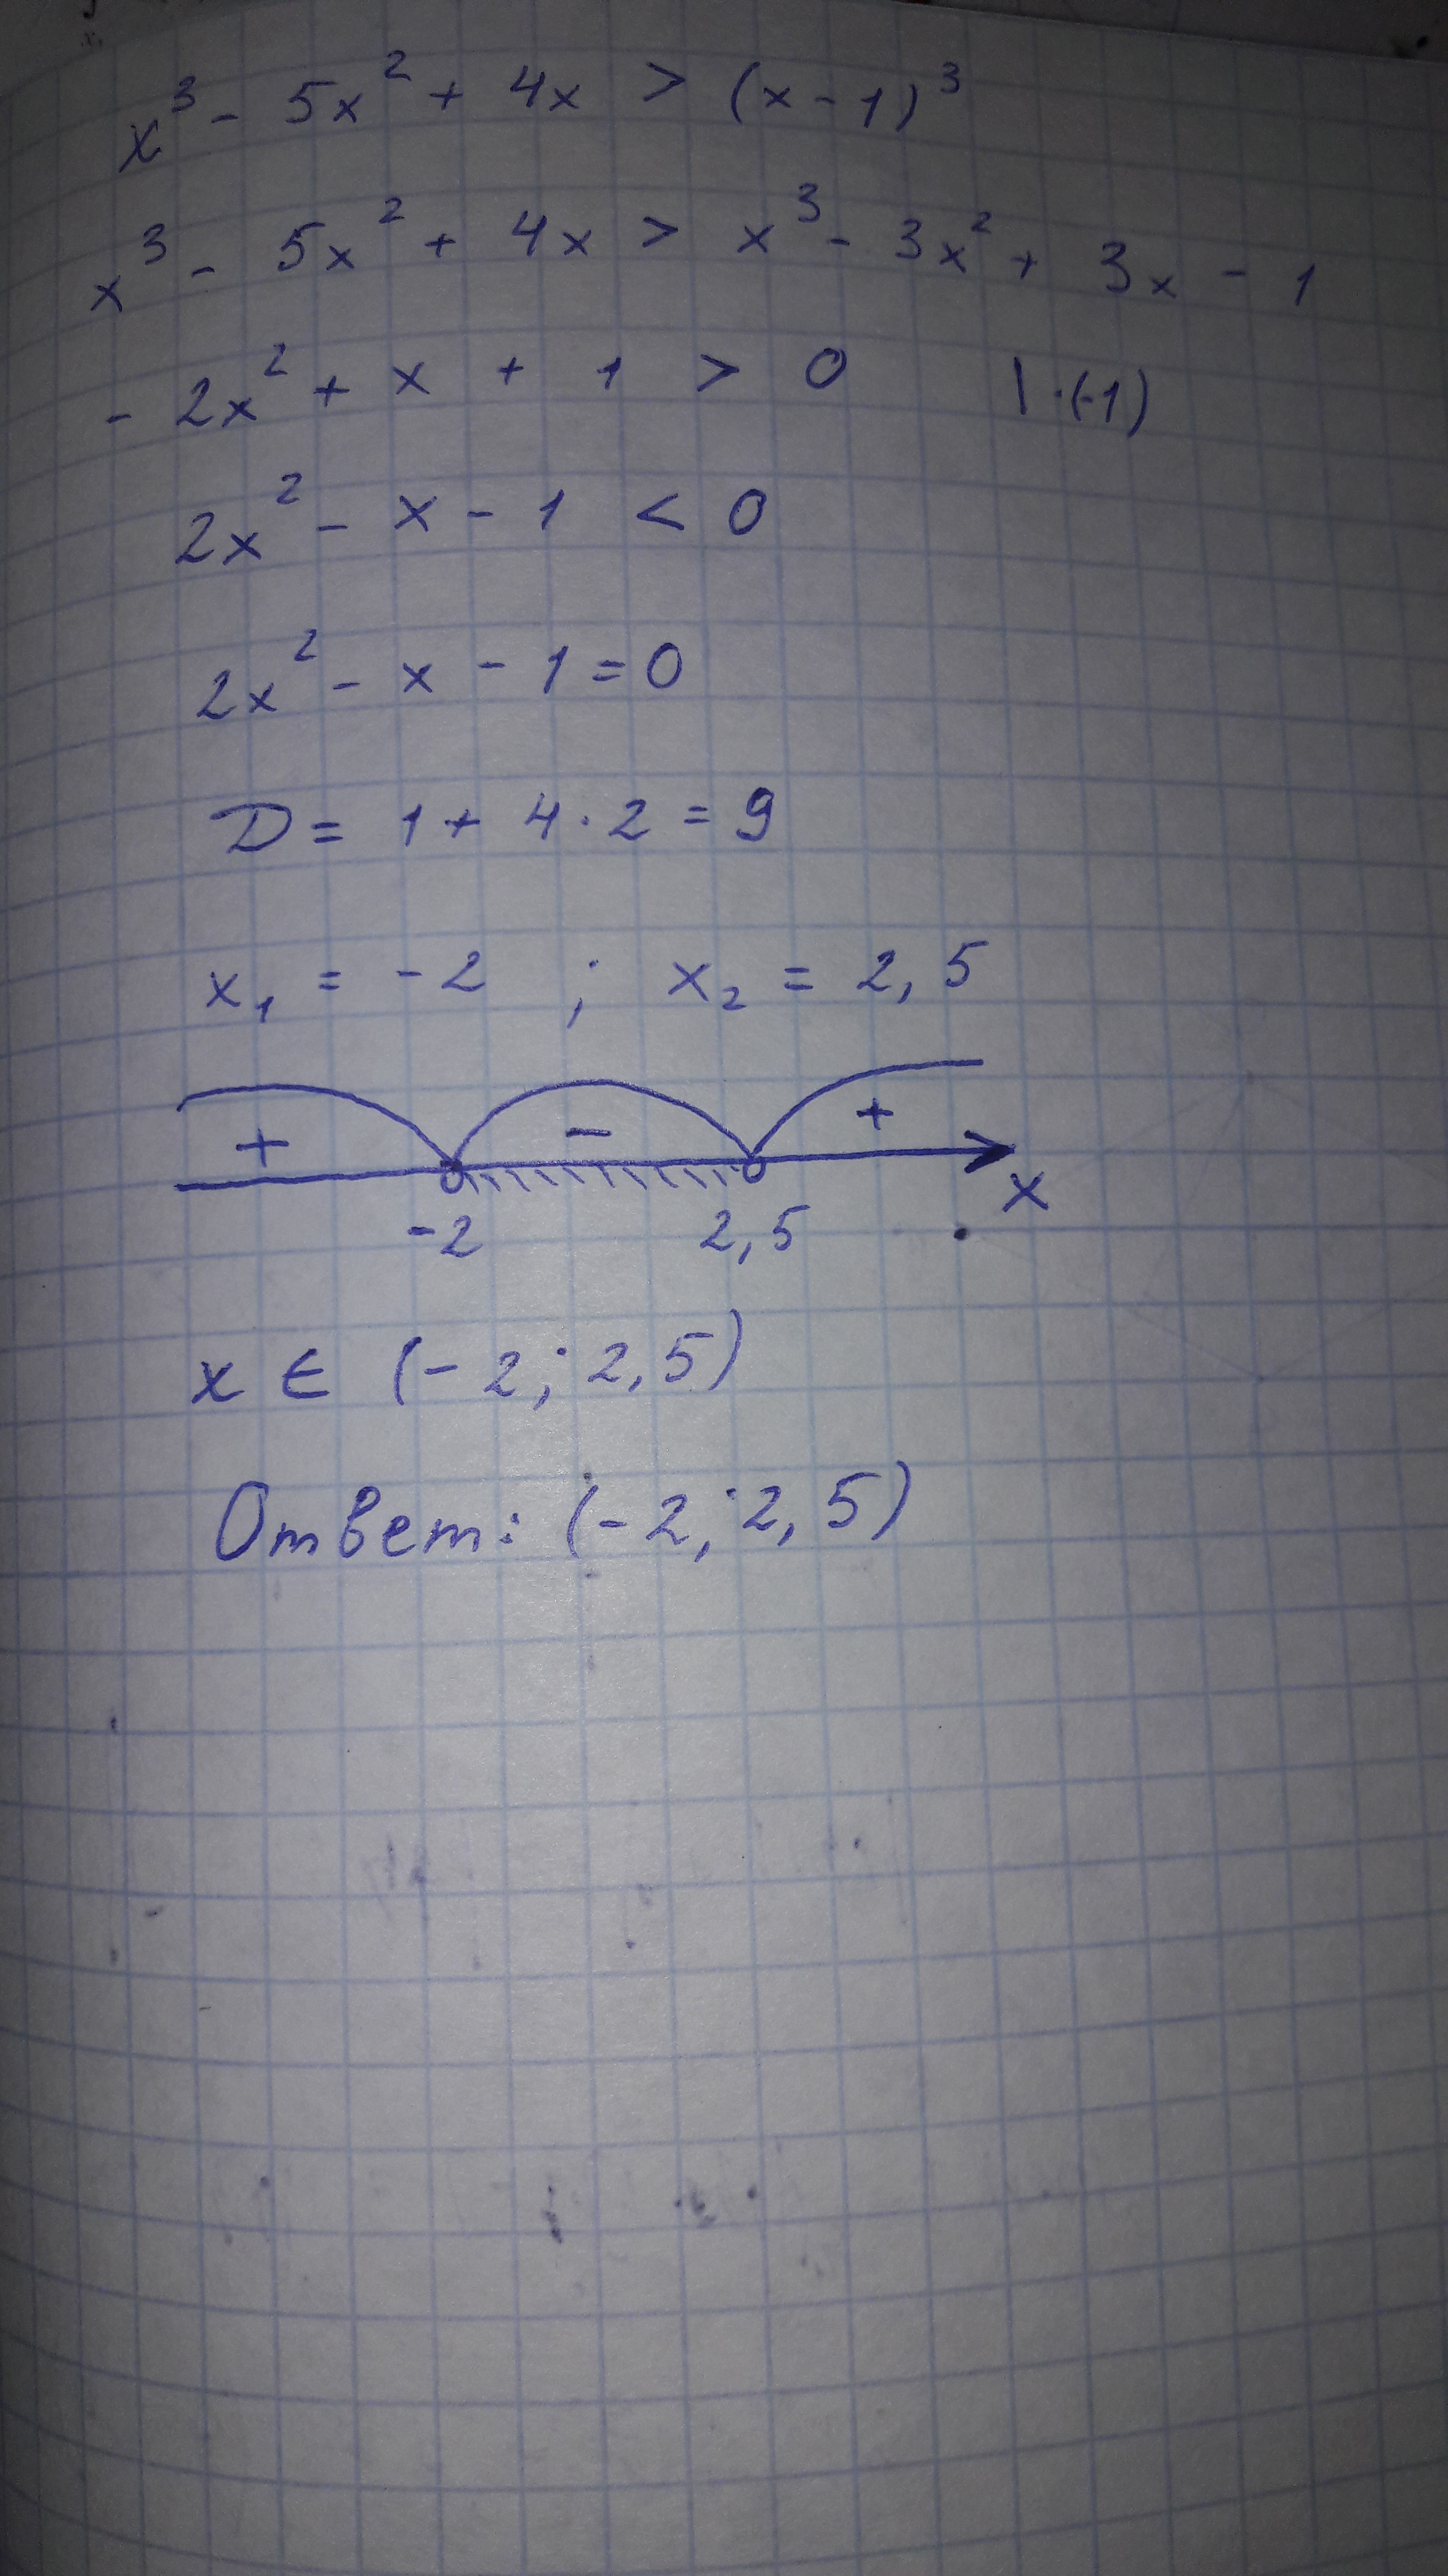 x³ - 5x² + 4x > (x - 1)³
x³ - 5x² + 4x > x³ - 3x² + 3x - 1
- 2x² + x + 1 > 0 | ·(-1)
2x² - x - 1 < 0
2x² - x - 1 = 0
D = 1 + 4 · 2 = 9
x₁ = -2 ; x₂ = 2,5
+ - +
x
-2 2,5
x ∈ (-2; 2,5)
Ответ: (-2; 2,5)